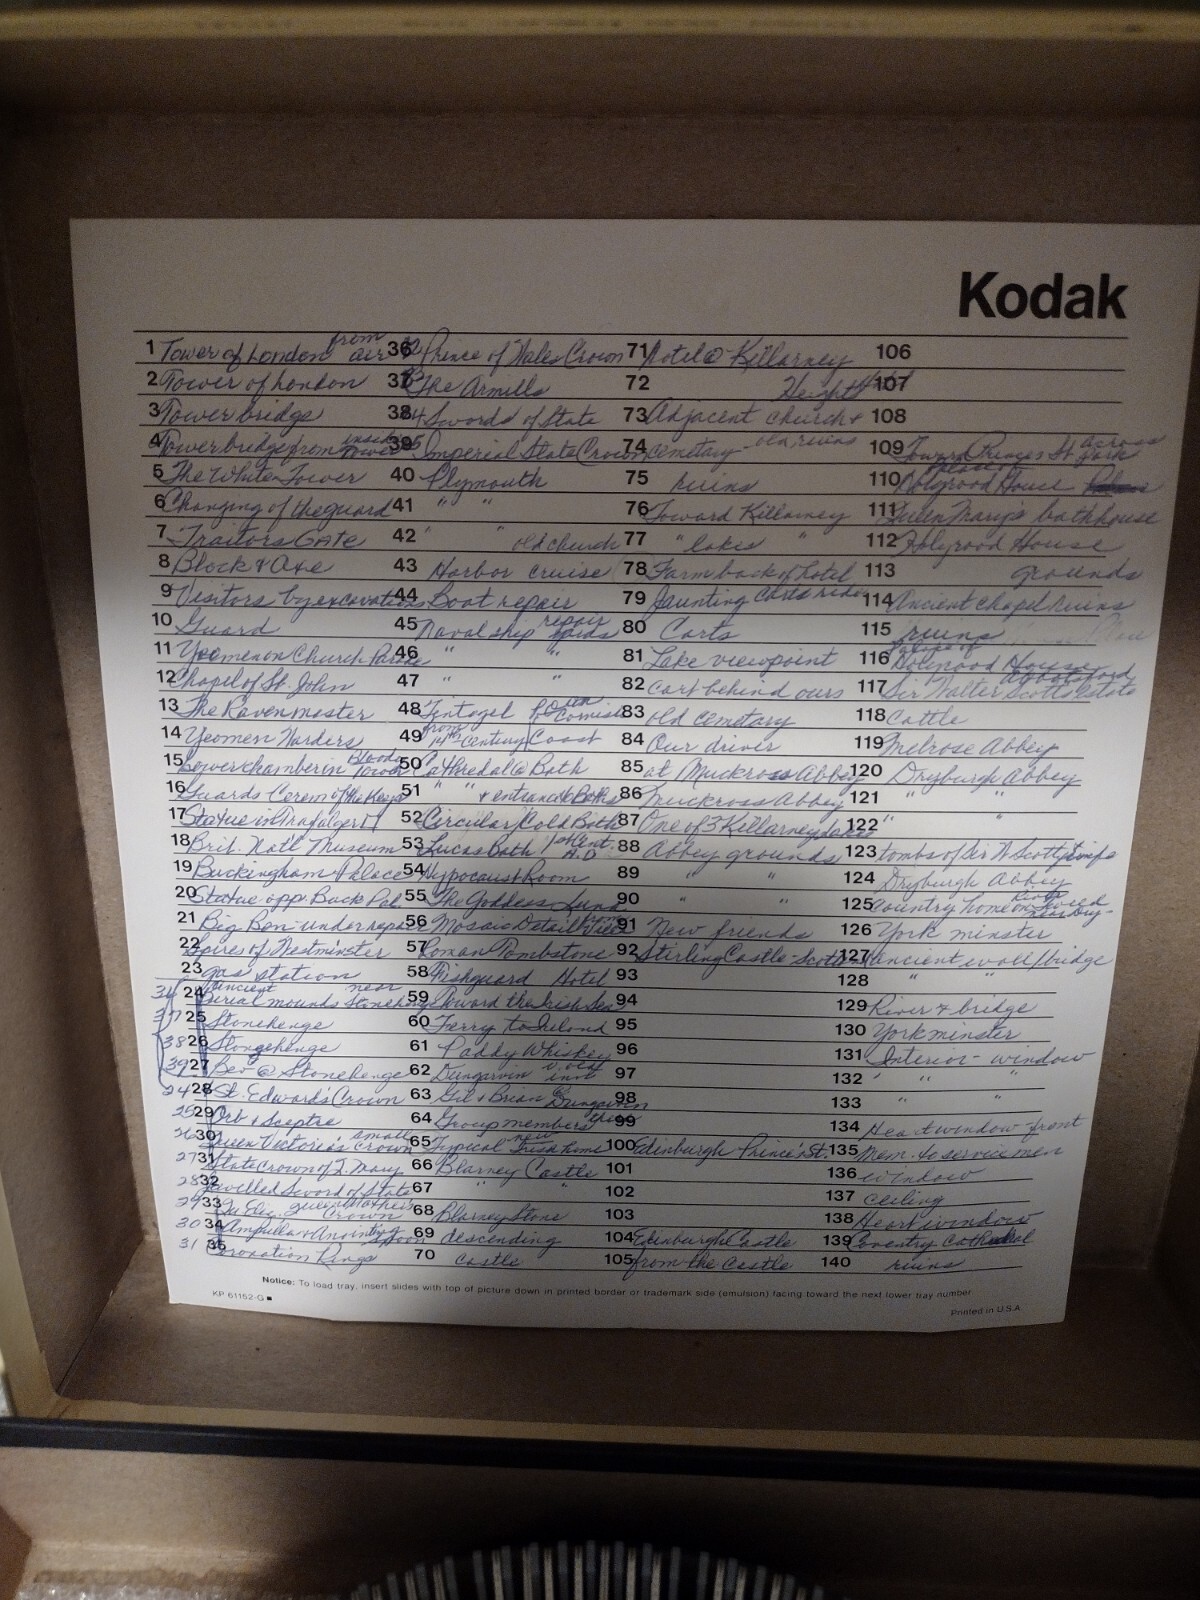 Kodak
1 Tower of London from air
2 Tower of London
3 Tower bridge
4 Tower bridge from inside Tower
5 The White Tower
6 Changing of the guard
7 Traitors Gate
8 Block & Axe
9 Visitors by excavations
10 Guard
11 Yeomen on Church Parade
12 Chapel of St. John
13 The Ravenmaster
14 Yeomen Warders
15 Lower chamber in Bloody Tower
16 Guards Cerem of the Keys
17 Statue in Trafalger
18 Brit. Nat'l Museum
19 Buckingham Palace
20 Statue opp. Buck Pal.
21 Big Ben under repair
22 Spires of Westminster
23 gas station
36 24 Ancient Burial mounds near Stonehenge
37 25 Stonehenge
38 26 Stongehenge
39 27 Bev @ Stonehenge
24 28 St. Edwards Crown
25 29 Orb & Sceptre
26 30 Queen Victoria's small crown
27 31 State Crown of Q. Mary
28 32 Jewelled Sword of State
29 33 Qu Eliz Queen Mother's Crown
30 34 Ampulla & Anointing Spoon
31 35 Coronation Rings
36 32 Prince of Wales Crown
37 33 The Armills
38 34 Swords of State
39 35 Imperial State Crown
40 Plymouth
41 " "
42 " " old church
43 Harbor cruise
44 Boat repair
45 Naval ship repair
46 " "
47 " "
48 Tintagel on Cornish
49 from 14th Century Coast
50 Cathredal @ Bath
51 " " & entrance to Baths
52 Circular/Cold Bath
53 Lucas Bath 1st Cent. A.D.
54 Hypocaust Room
55 The Goddess
56 Mosaic Detail
57 Roman Tombstone
58 Fishguard Hotel
59 Toward the Irish Sea
60 Ferry to Ireland
61 Paddy Whiskey
62 Dungarvin
63 Gil & Brian Dungarvin
64 Group members
65 Typical new Irish home
66 Blarney Castle
67 " "
68 Blarney Stone
69 descending
70 castle
71 Hotel @ Killarney
72 Heights Hotel
73 Adjacent church &
74 cemetary - old ruins
75 ruins
76 Toward Killarney
77 " lakes "
78 Farm back of hotel
79 Jaunting carts
80 Carts
81 Lake viewpoint
82 cart behind ours
83 old cemetary
84 Our driver
85 at Muckross Abbey
86 Muckross Abbey
87 One of 3 Killarney lakes
88 Abbey grounds
89 " "
90 " "
91 New friends
92 Stirling Castle - Scotland
93
94
95
96
97
98
99
100 Edinburgh Prince's St.
101
102
103
104 Edinburgh Castle
105 from the Castle
106
107
108
109 Toward Princes St across park
110 Palace of Holyrood House
111 Queen Mary's bathhouse
112 Holyrood House
113 grounds
114 Ancient chapel ruins
115 ruins
116 Palace of Holyrood House
117 Sir Walter Scott's estate Abbotsford
118 Cattle
119 Melrose Abbey
120 Dryburgh Abbey
121 " "
122 " "
123 tombs of Sir W Scott & wife
124 Dryburgh Abbey
125 Country home on
126 York minster
127 Ancient wall/bridge
128 " "
129 River & bridge
130 York minster
131 Interior - window
132 " " "
133 " "
134 Heart window front
135 Mem. to service men
136 window
137 ceiling
138 Heart window
139 Coventry Cathedral
140 ruins
Notice: To load tray, insert slides with top of picture down in printed border or trademark side (emulsion) facing toward the next lower tray number
KP 61152-G
Printed in U.S.A